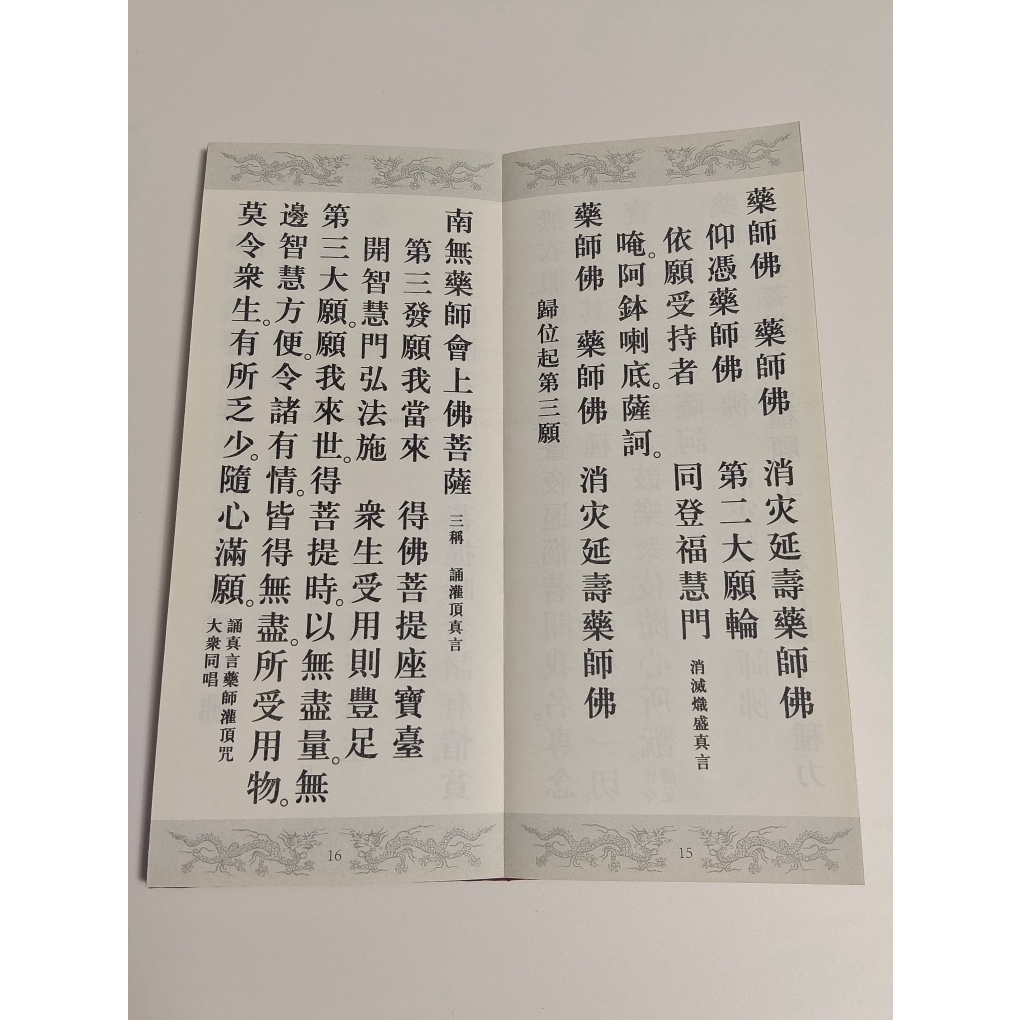 藥師佛　藥師佛　消灾延壽藥師佛
仰憑藥師佛　第二大願輪
依願受持者　同登福慧門　消滅熾盛真言
唵。阿鉢喇底。薩訶。
藥師佛　藥師佛　消灾延壽藥師佛
歸位起第三願
15
南無藥師會上佛菩薩　三稱　誦灌頂真言
第三發願我當來　得佛菩提座寶臺
開智慧門弘法施　衆生受用則豐足
第三大願。願我來世。得菩提時。以無盡量。無
邊智慧方便。令諸有情。皆得無盡。所受用物。
莫令衆生。有所乏少。隨心滿願。誦真言藥師灌頂咒
大衆同唱
16